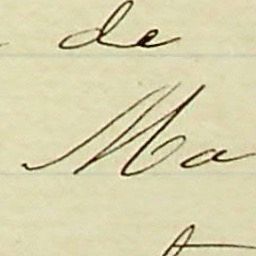 de
Ma